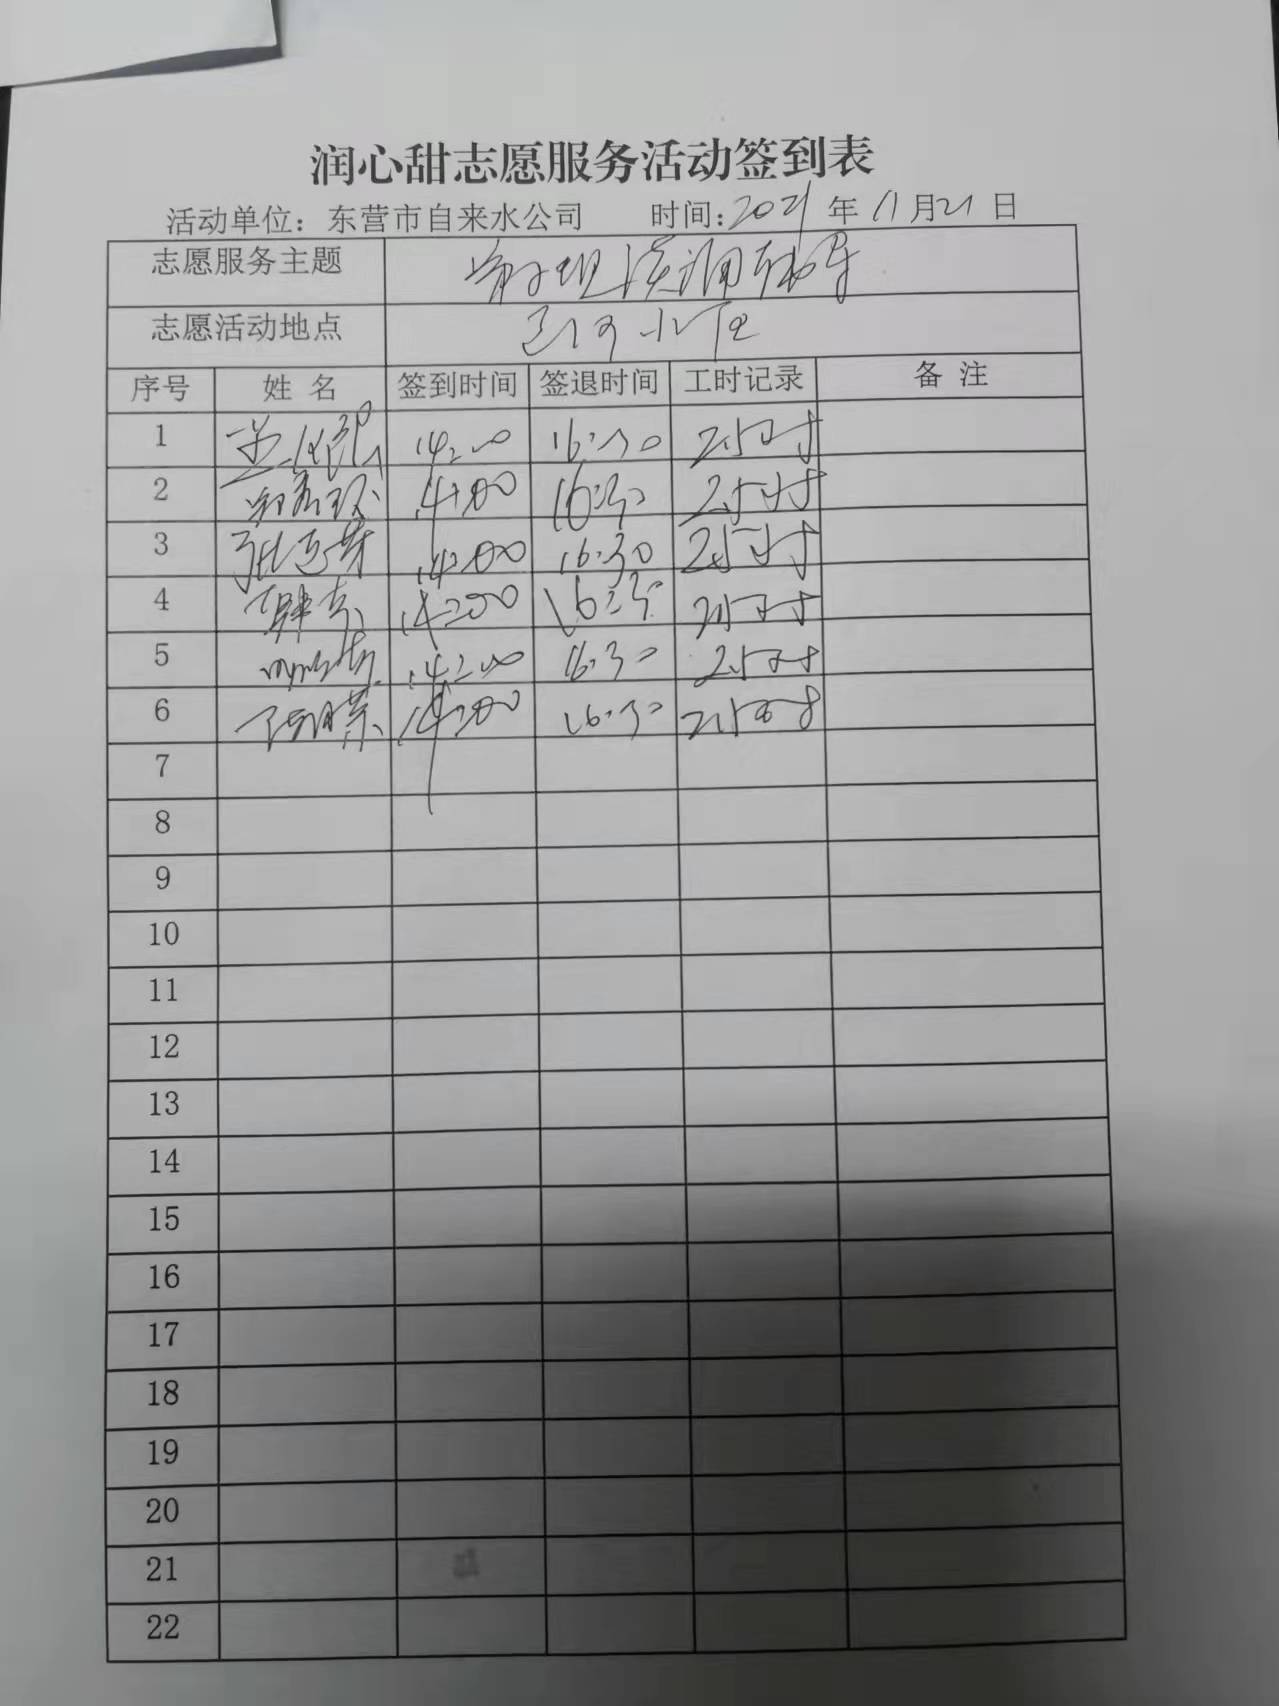 润心甜志愿服务活动签到表
活动单位：东营市自来水公司 时间：2021年11月21日
志愿服务主题
志愿活动地点 小区
序号 姓名 签到时间 签退时间 工时记录 备注
1 14:00 16:30 2.5小时
2 14:00 16:30 2.5小时
3 14:00 16:30 2.5小时
4 14:00 16:30 2.5小时
5 14:00 16:30 2.5小时
6 14:00 16:30 2.5小时
7
8
9
10
11
12
13
14
15
16
17
18
19
20
21
22